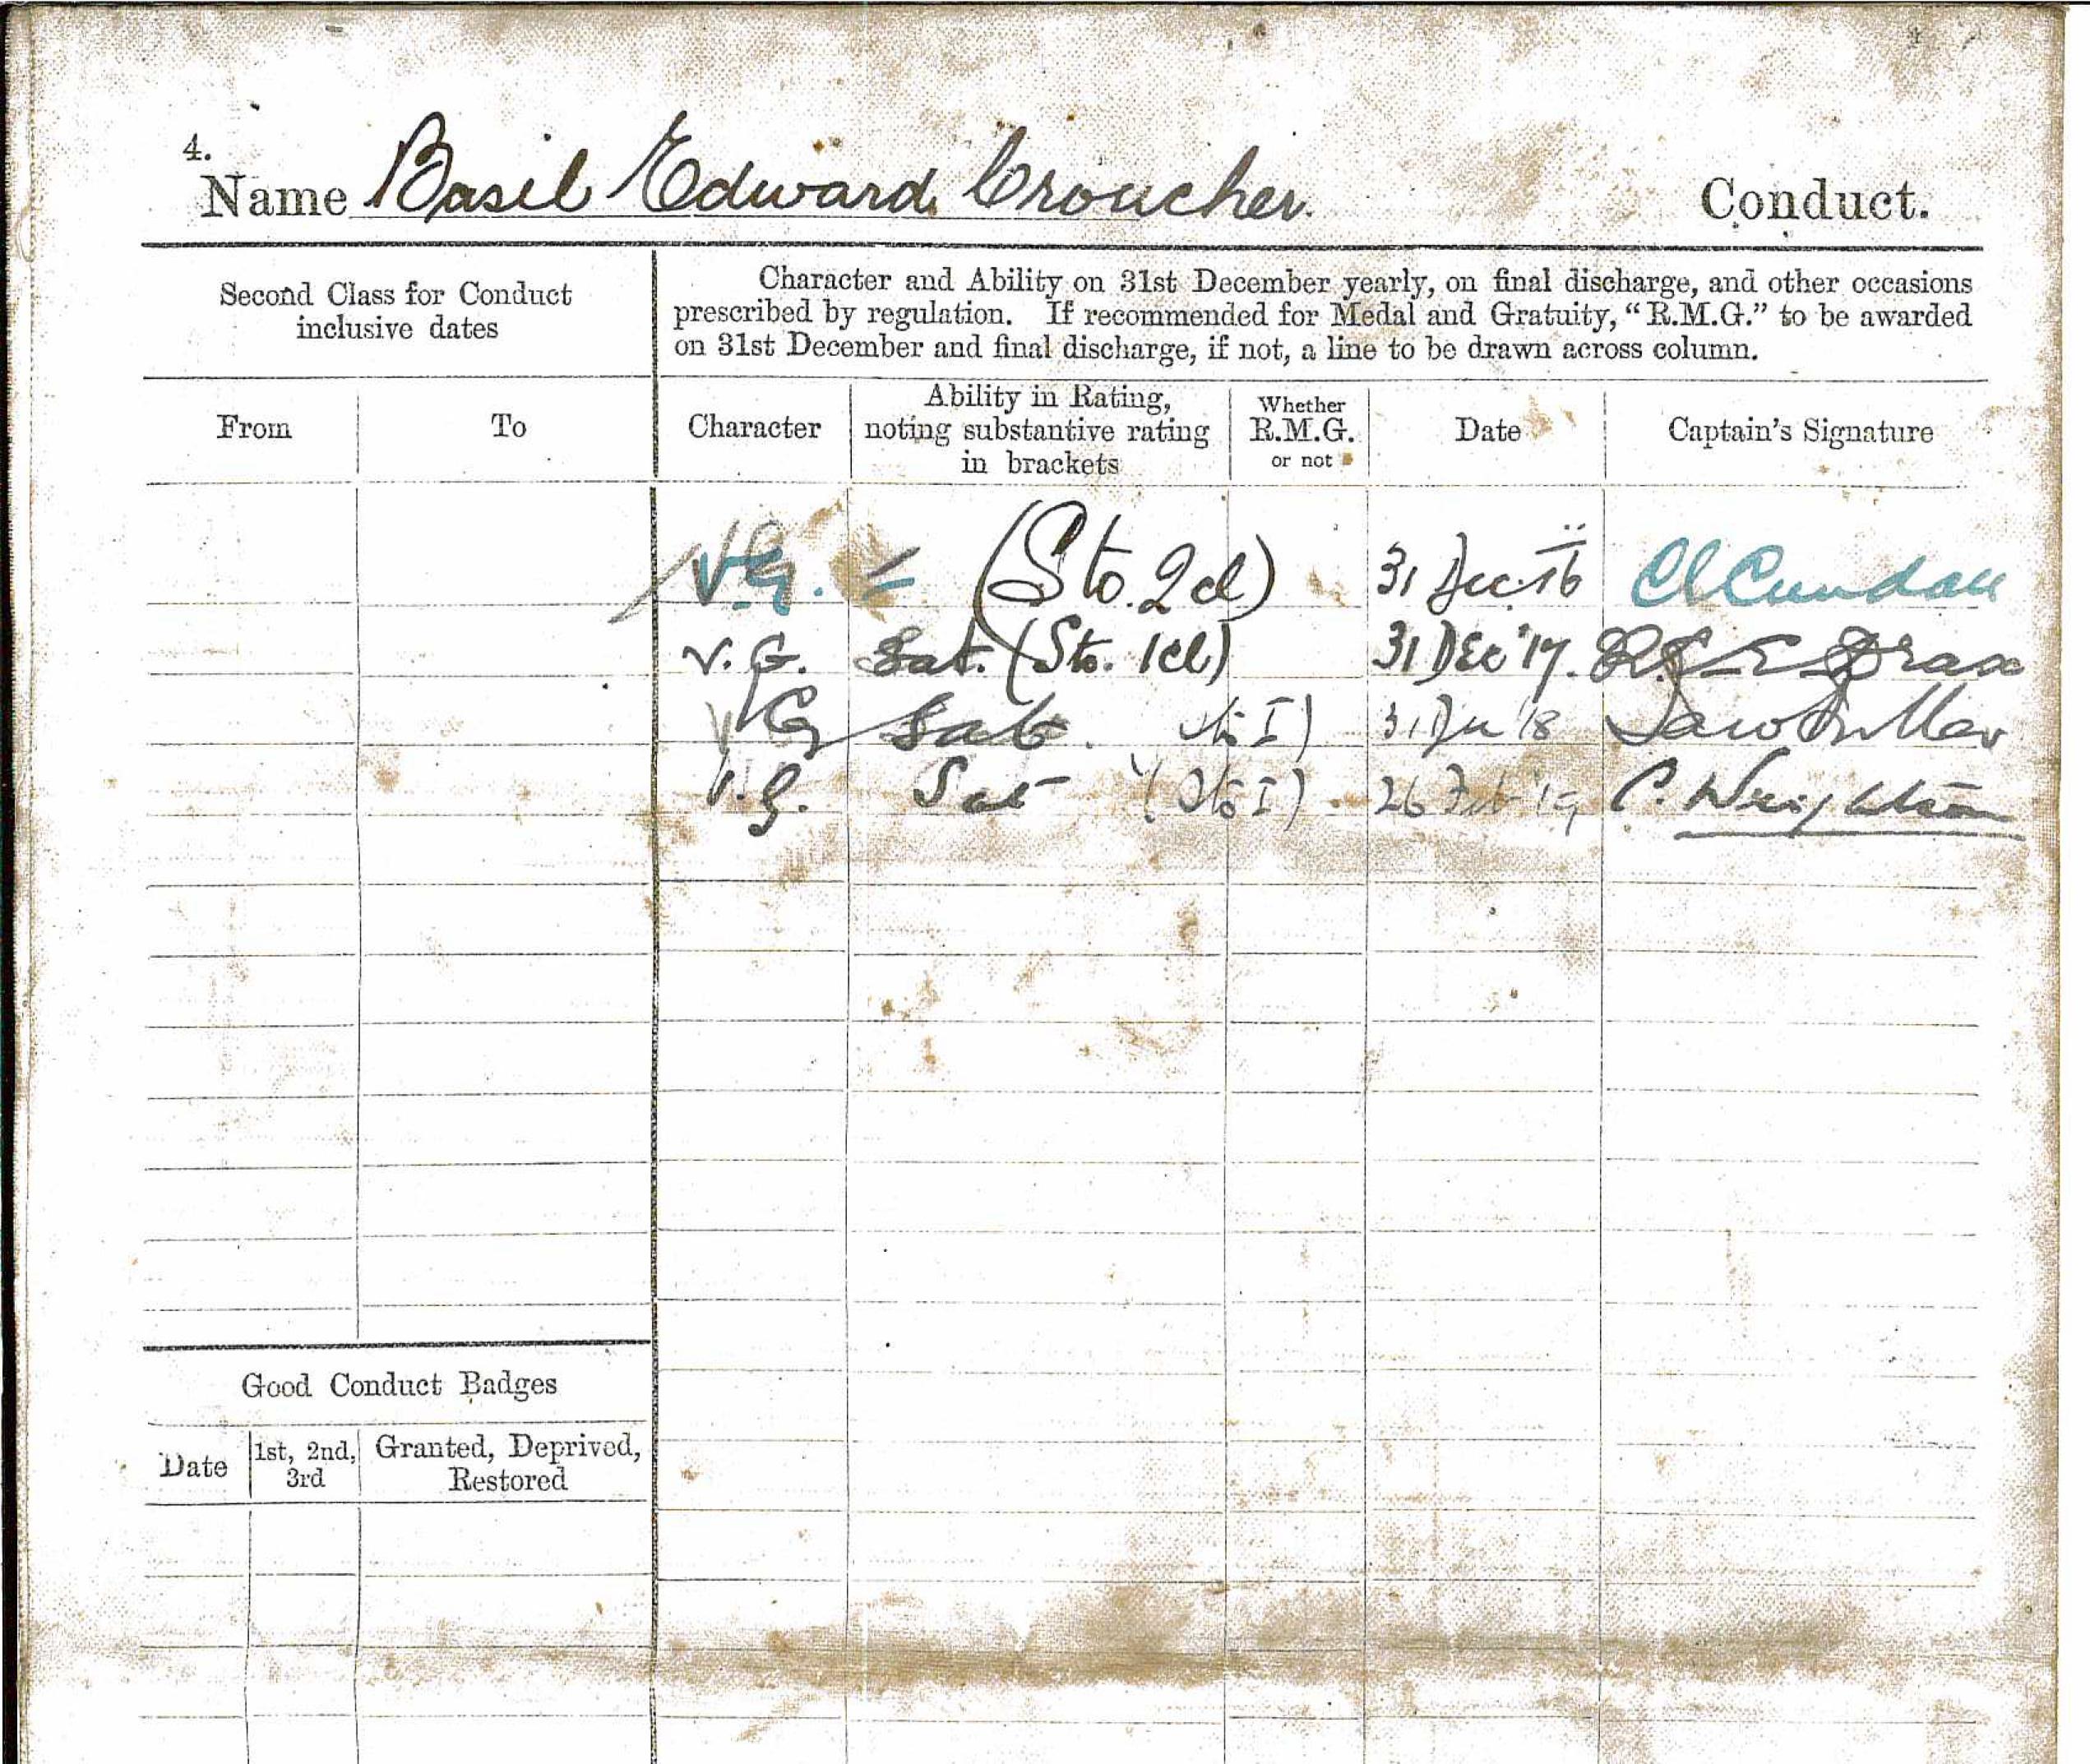 4.
Name Basil Edward Croucher. Conduct.
Second Class for Conduct
inclusive dates
Character and Ability on 31st December yearly, on final discharge, and other occasions
prescribed by regulation. If recommended for Medal and Gratuity, "R.M.G." to be awarded
on 31st December and final discharge, if not, a line to be drawn across column.
From To Character
Ability in Rating,
noting substantive rating
in brackets
Whether
R.M.G.
or not
Date Captain's Signature
V.G. - (Sto. 2cl) 31 Dec. 16 Cundall
V.G. Sat. (Sto. 1cl) 31 DEC '17. R. E Drax
V G Sat. Sto I) 31 '18
V.G. Sat (Sto I) 26 Feb '19 C. Wrightson
Good Conduct Badges
Date
1st, 2nd,
3rd
Granted, Deprived,
Restored